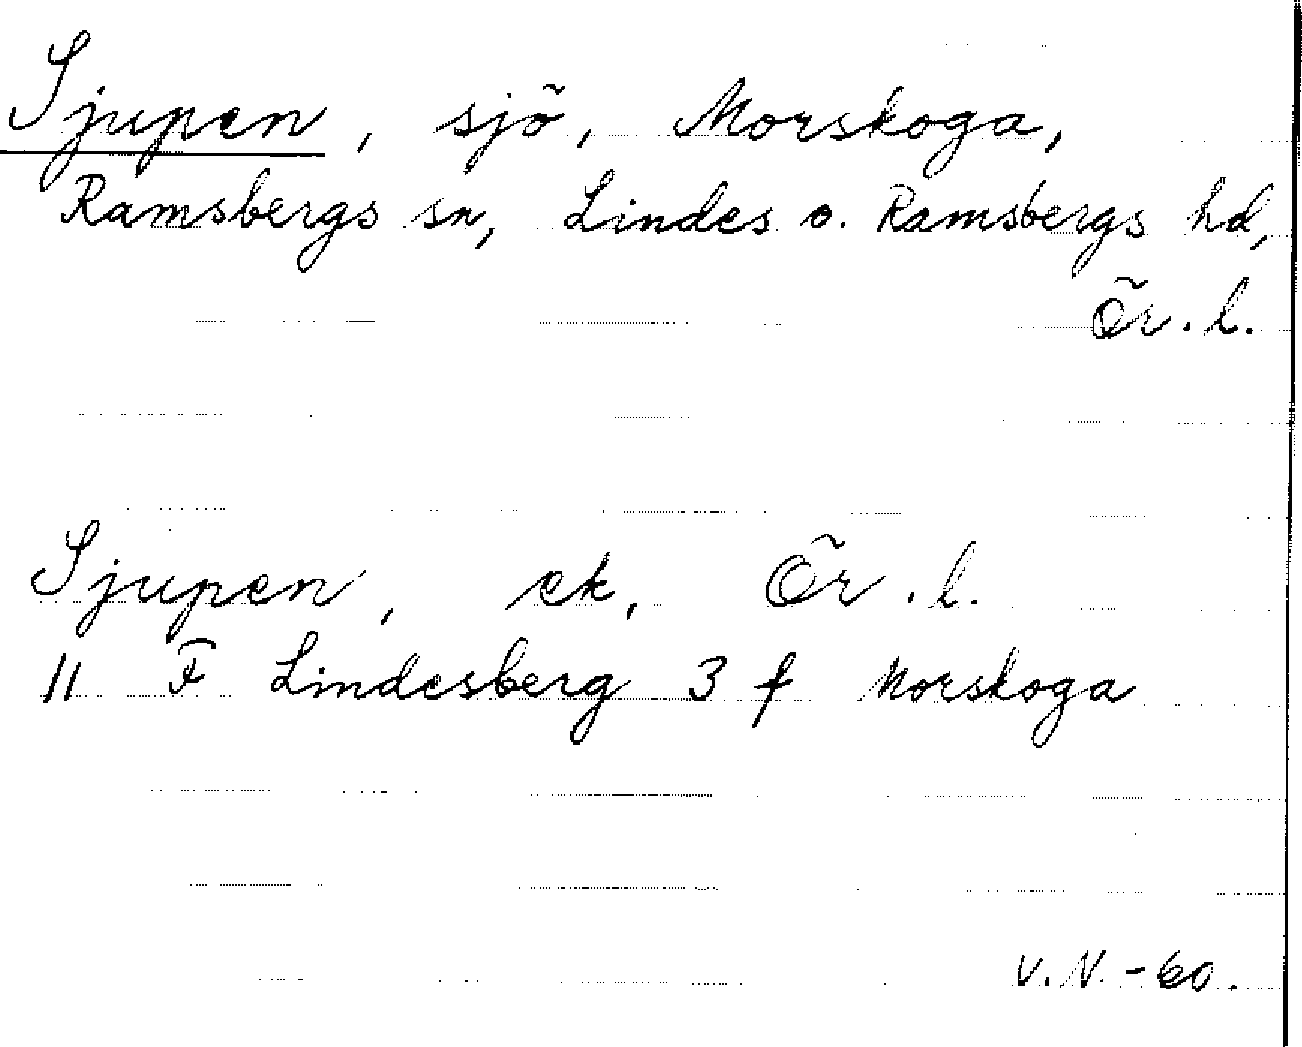 Sjupen, sjö, Morskoga,
Ramsbergs sn, Lindes o. Ramsbergs hd,
Ör. l.
Sjupen, ek, Ör. l.
11 F Lindesberg 3 f Morskoga
V.N. -60.